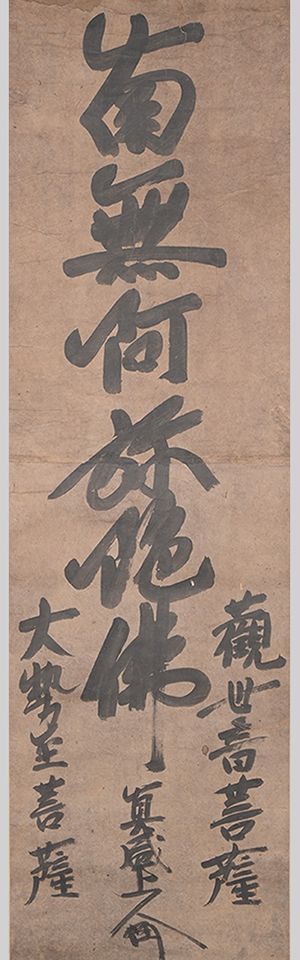 南無阿弥陀佛
觀世音菩薩
大勢至菩薩
真盛上人